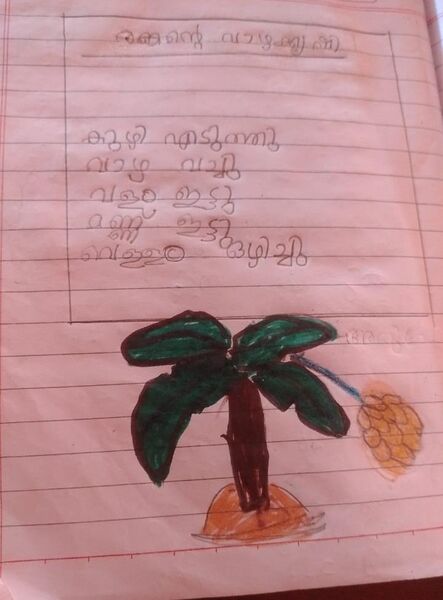 രങ്കന്റെ വാഴക്കൃഷി
കുഴി എടുത്തു
വാഴ വച്ചു
വളം ഇട്ടു
മണ്ണ് ഇട്ടു
വെള്ളം ഒഴിച്ചു